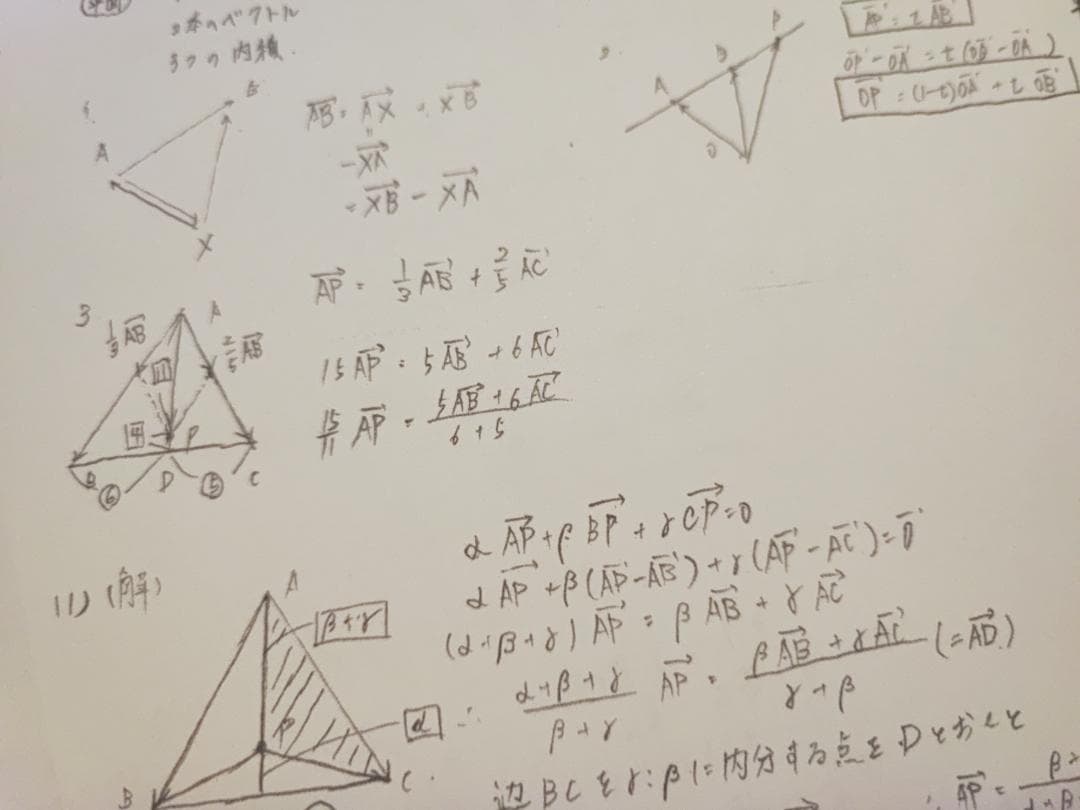 平面
2本のベクトル
3つの内積.
1.
A
B
X
AB = AX + XB
"
-XA
= XB - XA
2.
A
B
P
O
AP = t AB
OP - OA = t (OB - OA)
OP = (1-t)OA + t OB
3
A
1/3 AB
2/5 AB
11
4
P
B
D
C
⑥
⑤
AP = 1/3 AB + 2/5 AC
15 AP = 5 AB + 6 AC
15/11 AP = (5AB + 6AC)/(6+5)
11) (解)
A
β+γ
P
α
B
C
α AP + β BP + γ CP = 0
α AP + β(AP - AB) + γ(AP - AC) = 0
(α+β+γ) AP = β AB + γ AC
∴ (α+β+γ)/(β+γ) AP = (β AB + γ AC)/(γ+β) (= AD.)
辺BCをγ:βに内分する点をDとおくと
∴ AP =